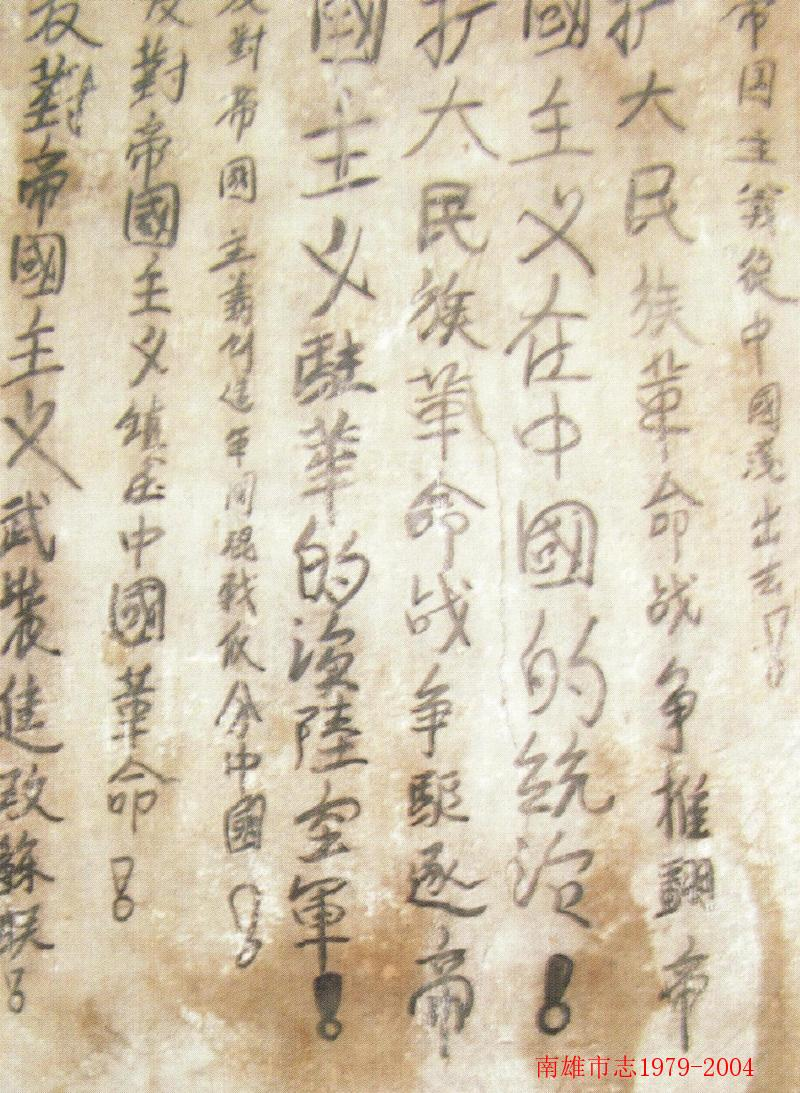 帝国主義從中國滚出去！
扩大民族革命战争推翻帝
國主义在中國的統治！
扩大民族革命战争駆逐帝
國主义駐華的海陸空軍！
反對帝國主義混战瓜分中國！
反對帝國主义鎮压中國革命！
反對帝國主义武裝進攻蘇联！
南雄市志1979-2004